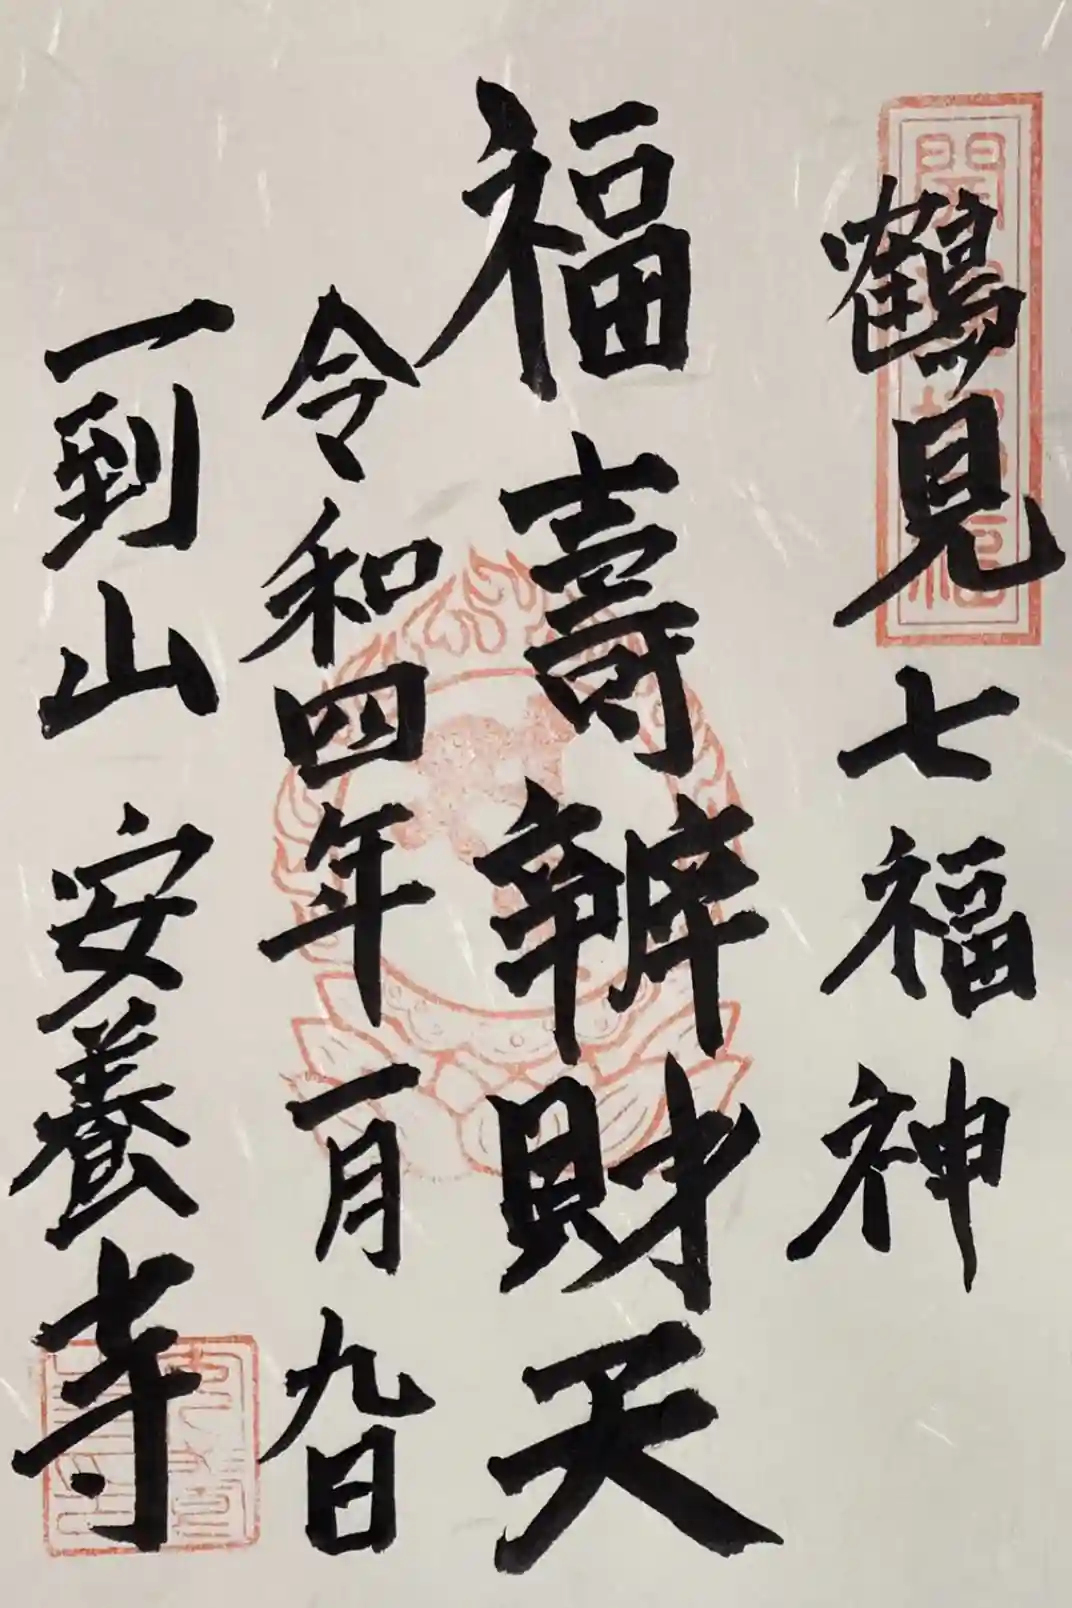 鶴見七福神
福壽辨財天
令和四年一月九日
一到山 安養寺